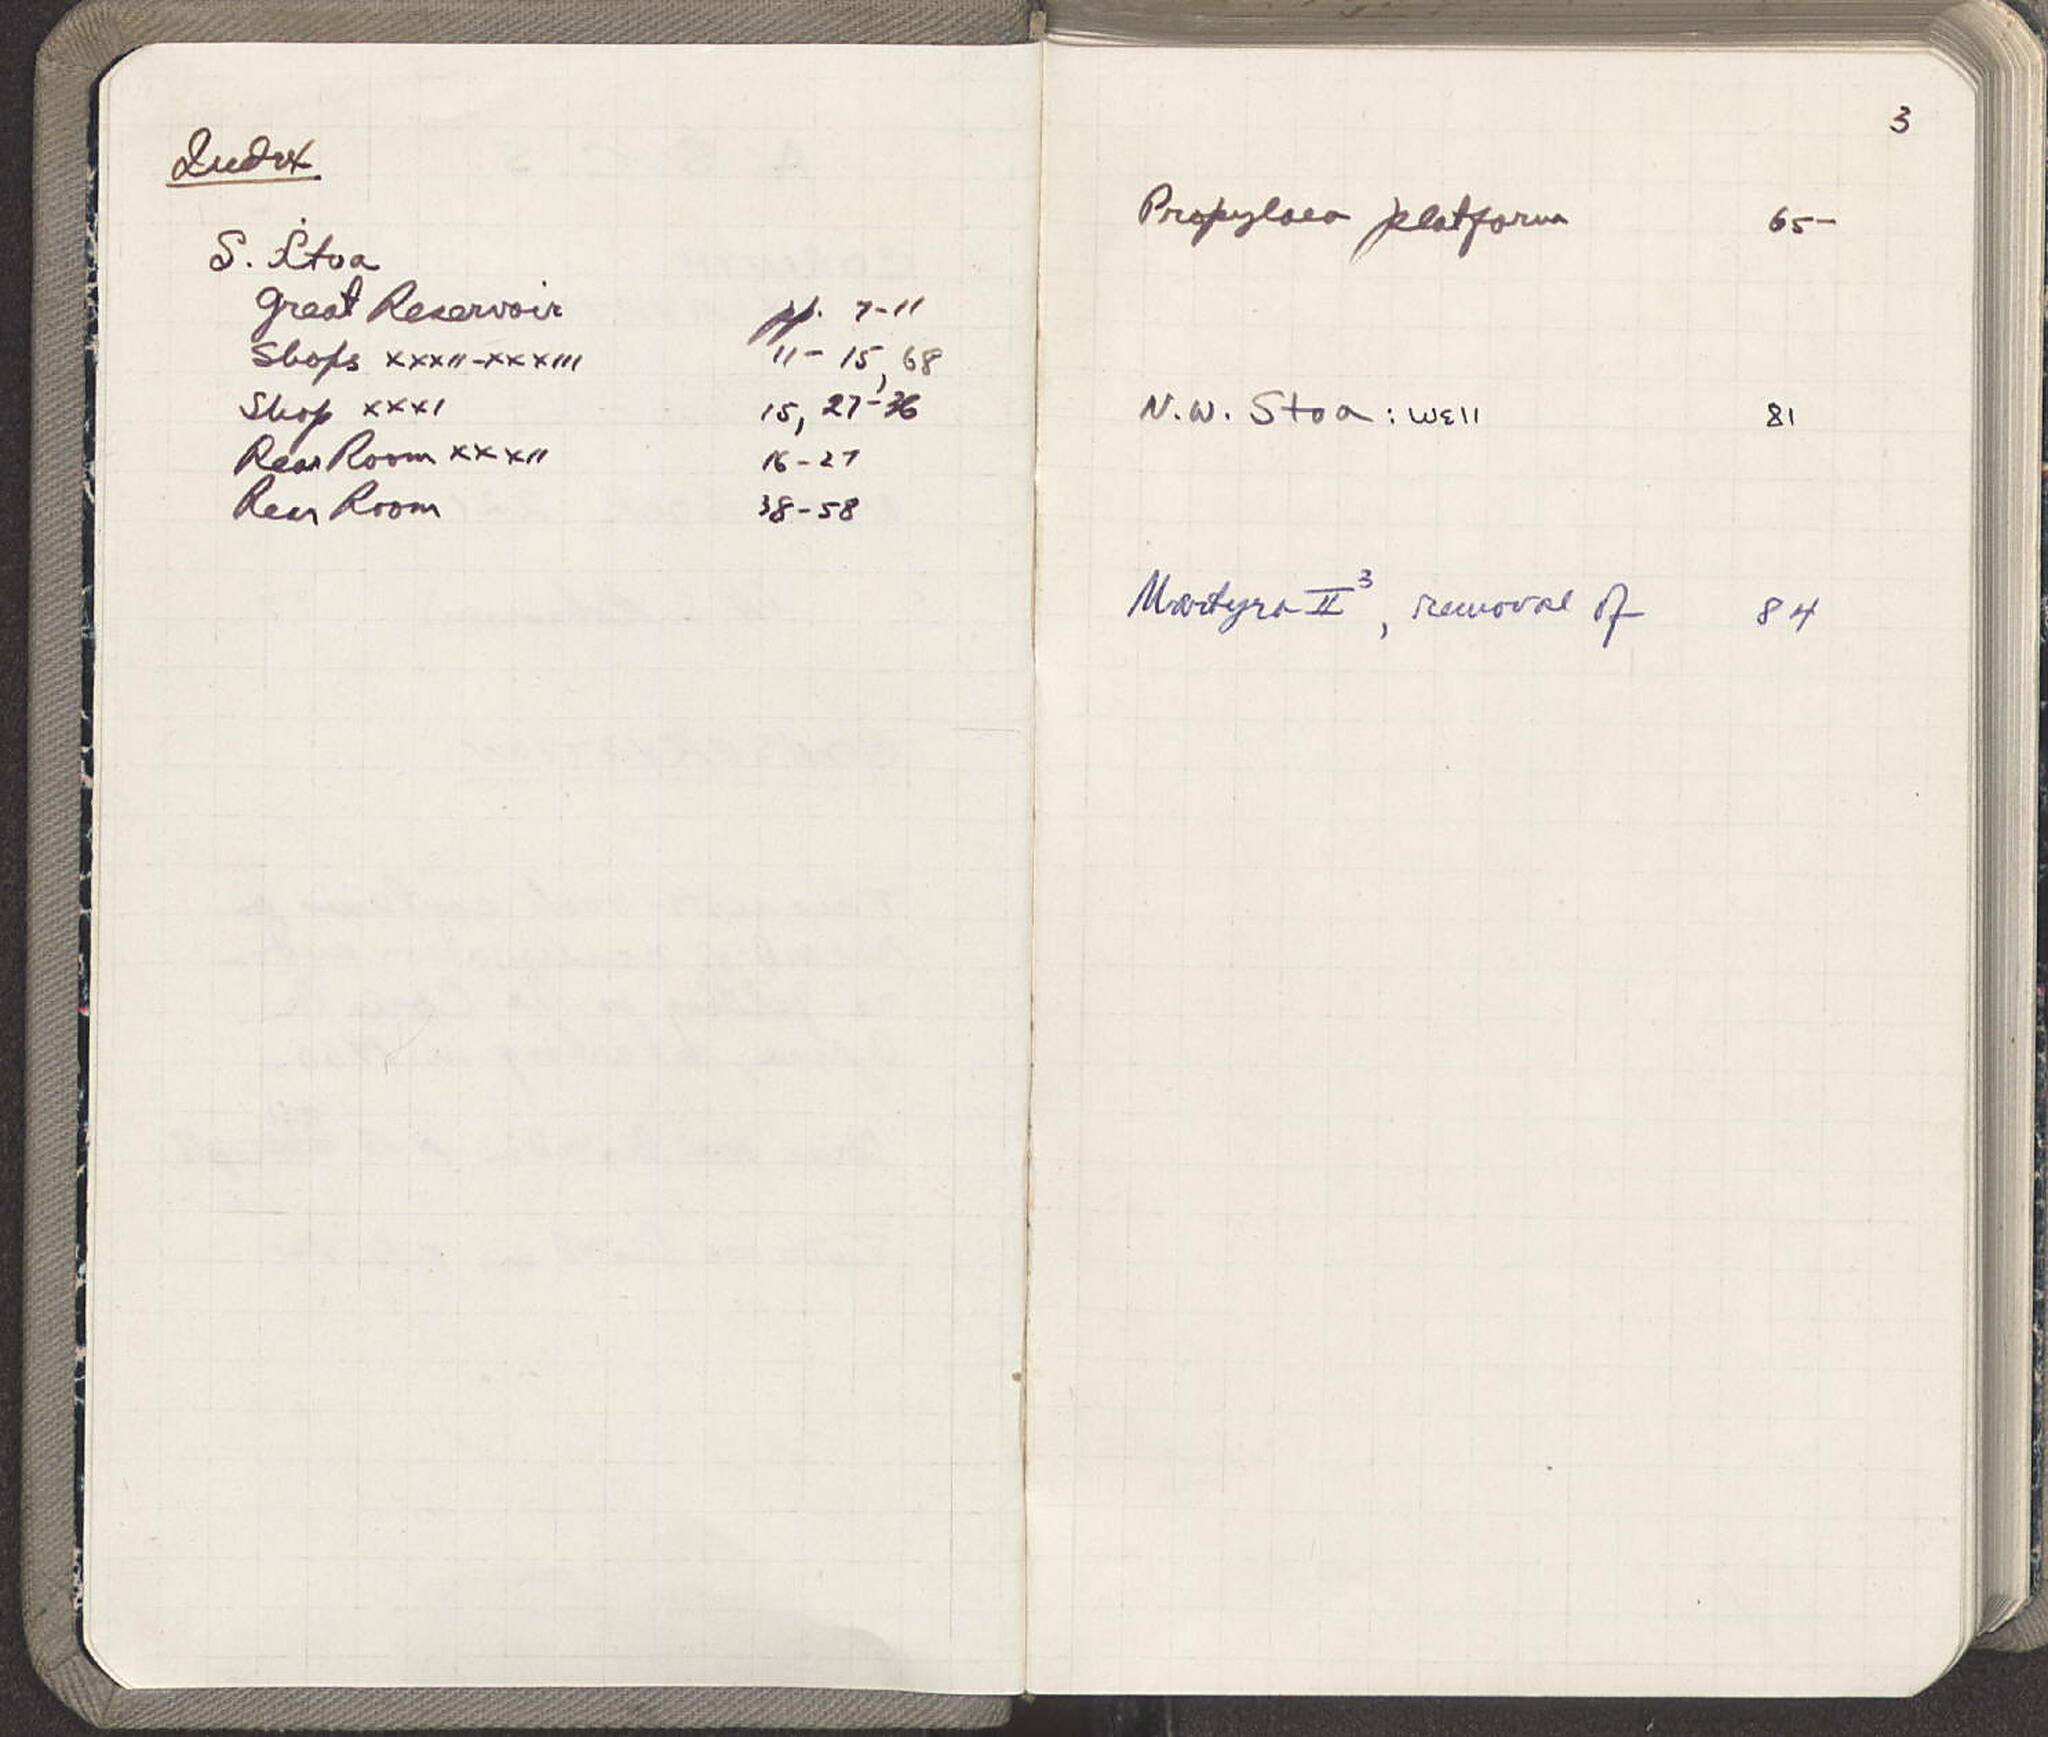 Index
S. Stoa
Great Reservoir pp. 7-11
Shops XXXII-XXXIII 11-15, 68
Shop XXXI 15, 27-36
Rear Room XXXII 16-27
Rear Room 38-58
3
Propylaea platform 65-
N.W. Stoa: WEll 81
Martyra II³, removal of 84